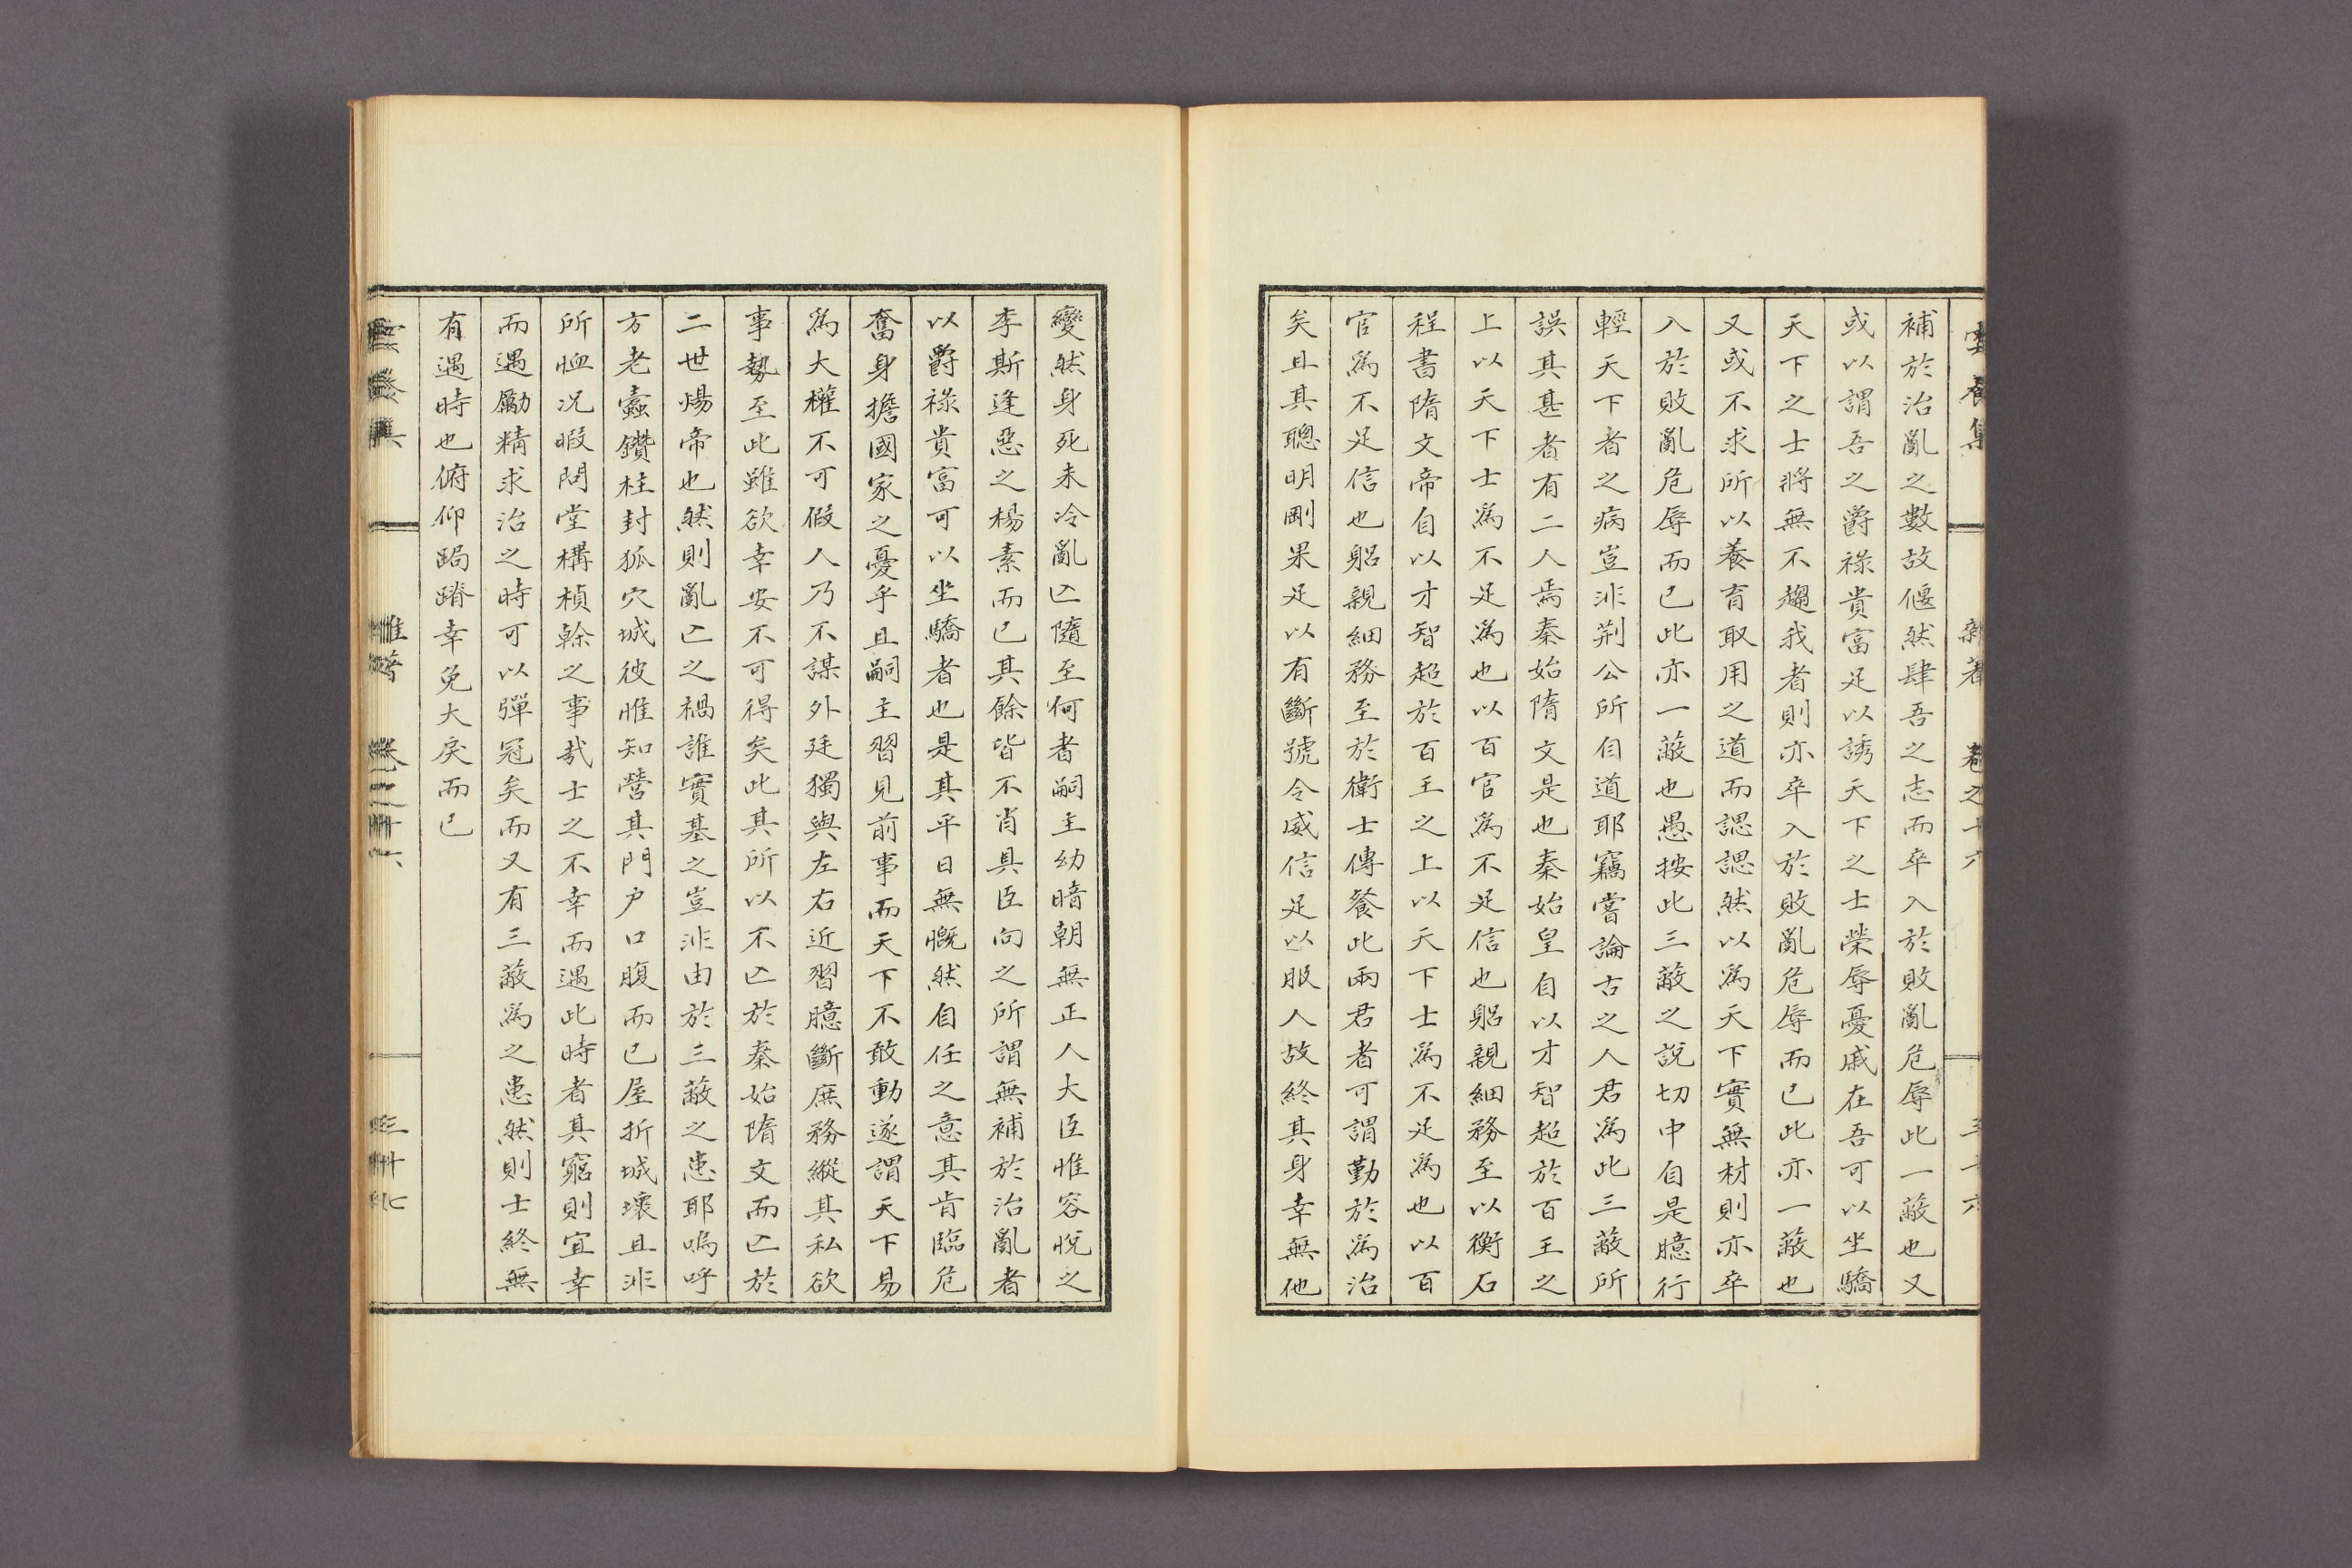 雲養集 雜著 卷之十六 三十六
補於治亂之數故偃然肆吾之志而卒入於敗亂危辱此一蔽也又
或以謂吾之爵祿貴富足以誘天下之士榮辱憂戚在吾可以坐驕
天下之士將無不趨我者則亦卒入於敗亂危辱而已此亦一蔽也
又或不求所以養育取用之道而諰諰然以爲天下實無材則亦卒
入於敗亂危辱而已此亦一蔽也愚按此三蔽之說切中自是臆行
輕天下者之病豈非荊公所自道耶竊嘗論古之人君爲此三蔽所
誤其甚者有二人焉秦始隋文是也秦始皇自以才智超於百王之
上以天下士爲不足爲也以百官爲不足信也躬親細務至以衡石
程書隋文帝自以才智超於百王之上以天下士爲不足爲也以百
官爲不足信也躬親細務至於衛士傳餐此兩君者可謂勤於爲治
矣且其聰明剛果足以有斷號令威信足以服人故終其身幸無他
變然身死未冷亂亾隨至何者嗣主幼暗朝無正人大臣惟容悅之
李斯逢惡之楊素而已其餘皆不肖具臣向之所謂無補於治亂者
以爵祿貴富可以坐驕者也是其平日無慨然自任之意其肯臨危
奮身擔國家之憂乎且嗣主習見前事而天下不敢動遂謂天下易
爲大權不可假人乃不謀外廷獨與左右近習臆斷庶務縱其私欲
事勢至此雖欲幸安不可得矣此其所以不亾於秦始隋文而亾於
二世煬帝也然則亂亾之禍誰實基之豈非由於三蔽之患耶嗚呼
方老蠹鑽柱封狐穴城彼惟知營其門戶口腹而已屋折城壞且非
所恤況暇問堂構楨榦之事哉士之不幸而遇此時者其窮則宜幸
而遇勵精求治之時可以彈冠矣而又有三蔽爲之患然則士終無
有遇時也俯仰跼蹐幸免大戾而已